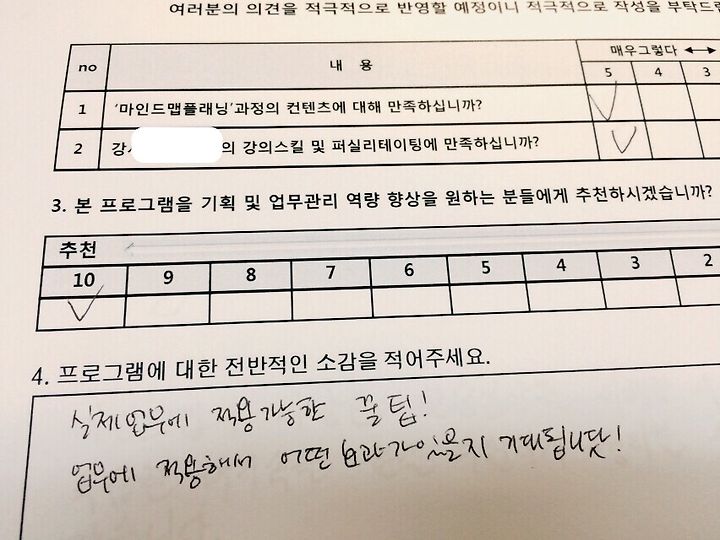 여러분의 의견을 적극적으로 반영할 예정이니 적극적으로 작성을 부탁드
no 내 용 매우그렇다
5 4 3
1 '마인드맵플래닝'과정의 컨텐츠에 대해 만족하십니까?
2 강 의 강의스킬 및 퍼실리테이팅에 만족하십니까?
3. 본 프로그램을 기획 및 업무관리 역량 향상을 원하는 분들에게 추천하시겠습니까?
추천
10 9 8 7 6 5 4 3 2
4. 프로그램에 대한 전반적인 소감을 적어주세요.
실제업무에 적용가능한 꿀팁!
업무에 적용해서 어떤 효과가있을지 기대됩니닷!